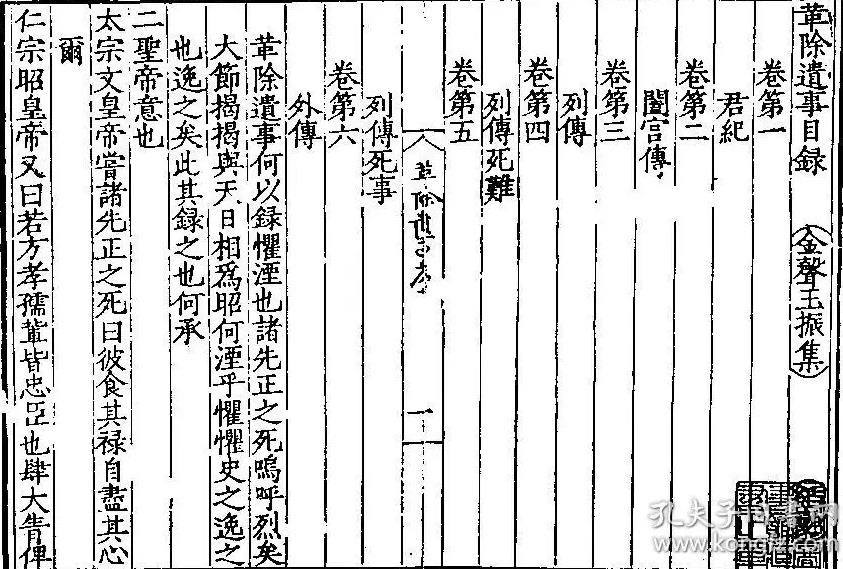 革除遺事目録 金聲玉振集
卷第一
君紀
卷第二
閹宦傳
卷第三
列傳
卷第四
列傳死難
卷第五
列傳死事
卷第六
外傳
革除遺事何以録懼湮也諸先正之死嗚呼烈矣
大節揭揭與天日相爲昭何湮乎懼懼史之逸之
也逸之矣此其録之也何承
二聖帝意也
太宗文皇帝嘗諸先正之死曰彼食其禄自盡其心
爾
仁宗昭皇帝又曰若方孝孺輩皆忠臣也肆大眚俾
孔夫子旧书网